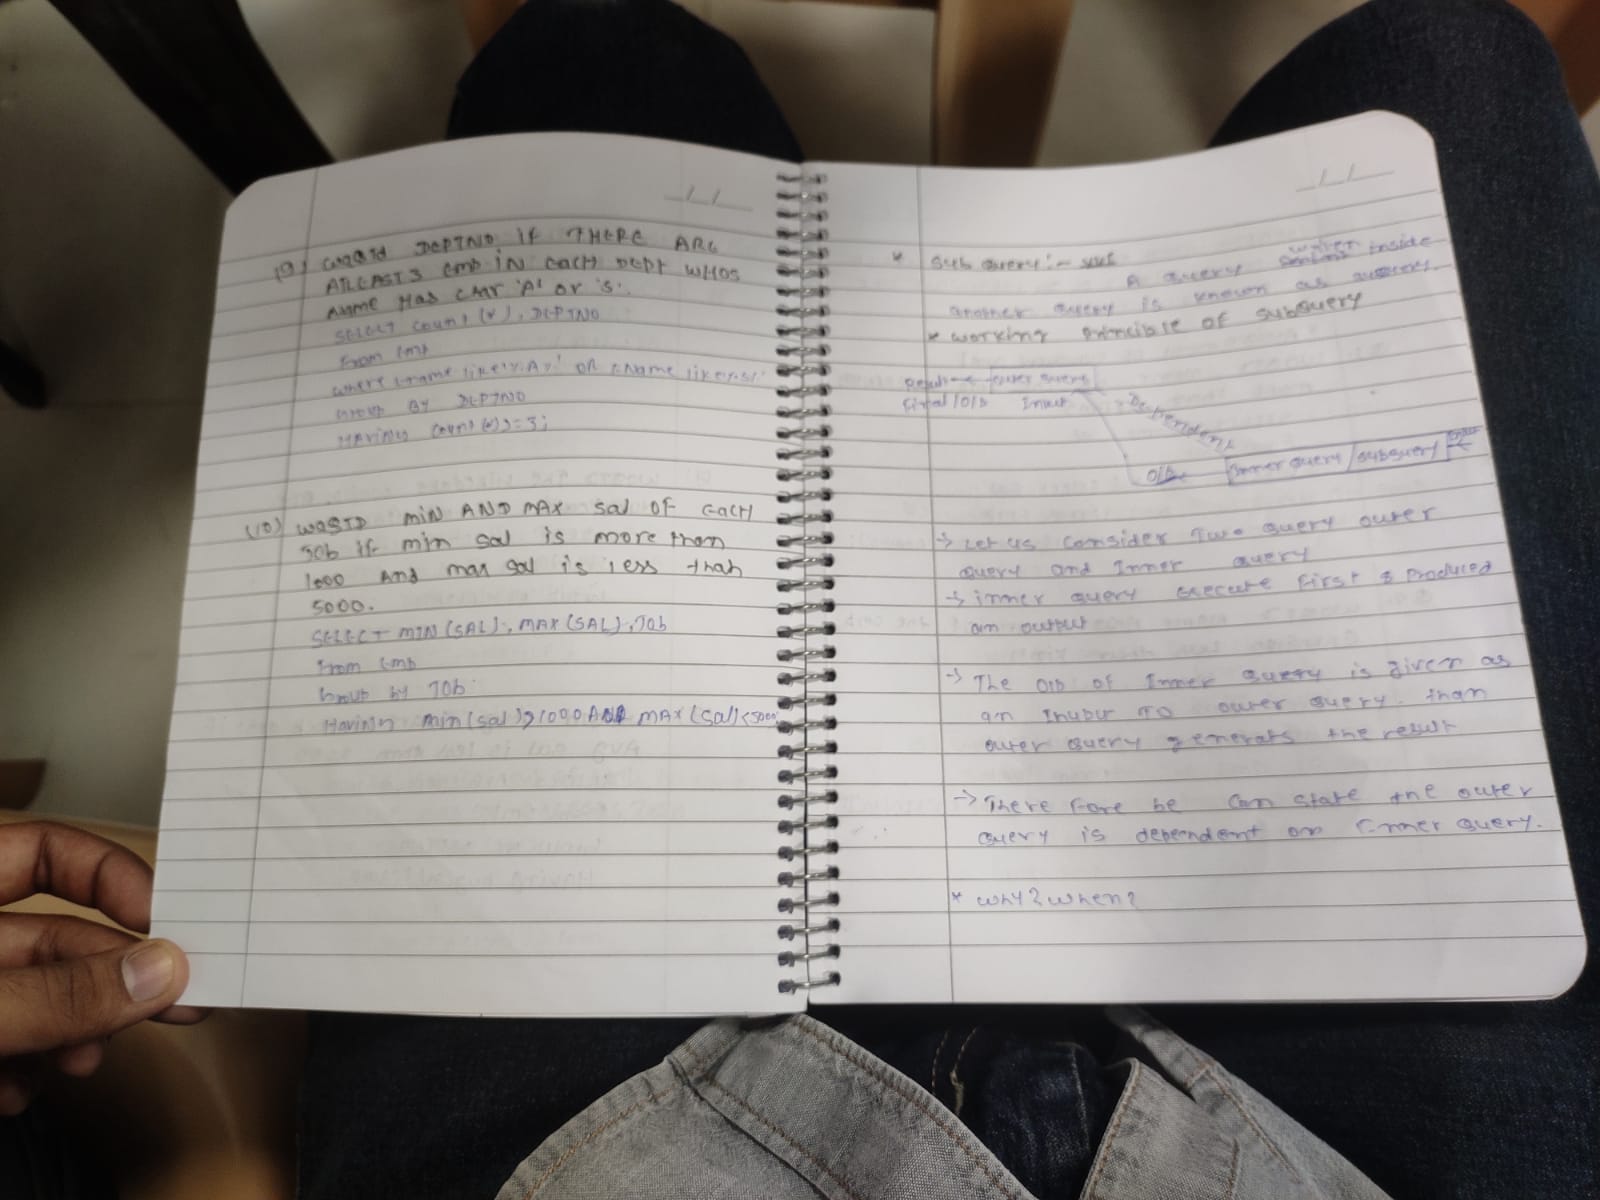 (9) WAQTD DEPTNO IF THERE ARE
ATLEAST 3 emp IN EACH DEPT WHOS
NAME HAS CHAR 'A' or 's'.
SELECT count (*), DEPTNO
From Emp
where Ename like
Group BY DEPTNO
Having count(*)>=3;
(10) WAQTD MIN AND MAX Sal OF EACH
Job if min sal is more than
1000 And max sal is less than
5000.
SELECT MIN (SAL), MAX (SAL), Job
From Emp
Group by Job
Having min(sal)>1000 AND MAX(sal)<5000
* Sub query :-
A query written inside
another query is known as
* working principle of subquery
outer query
final /O/P Input
Dependent
O/P
Inner query / subquery
→ Let us Consider Two query outer
query and Inner query
→ inner query execute first & Produced
an output
→ The O/P of Inner query is given as
an Input TO outer query. than
outer query generats the result
→ There Fore be can state the outer
query is dependent on Inner query.
* why? when?